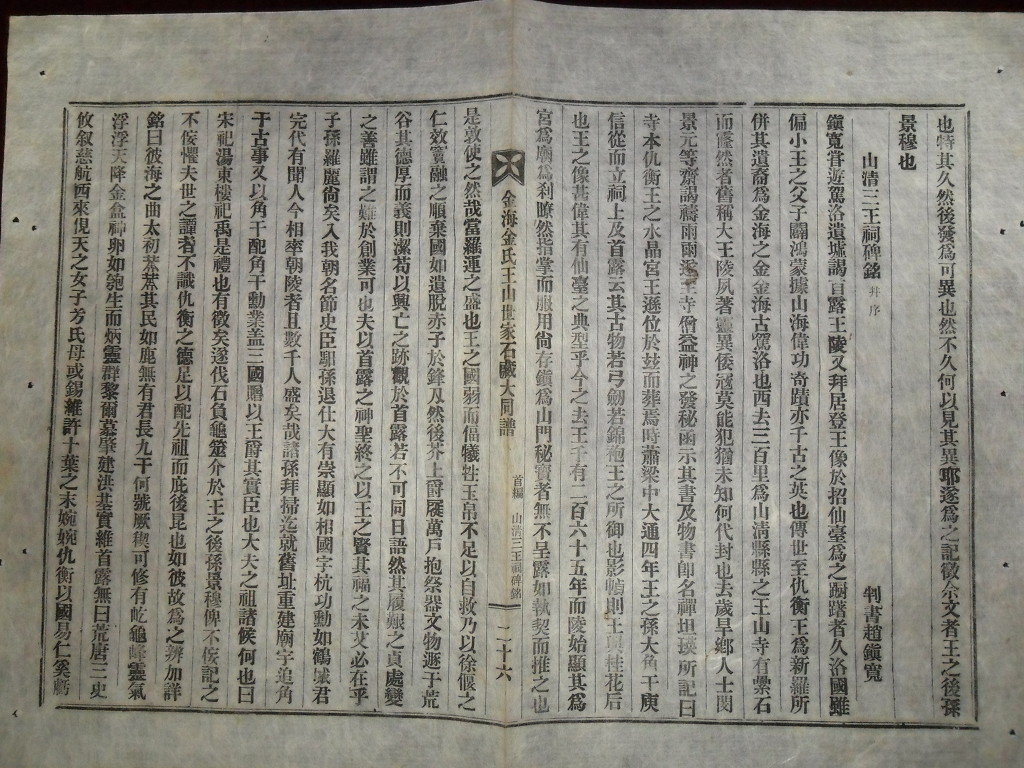 也特其久然後發爲可異也然不久何以見其異耶遂爲之記徵余文者王之後孫
景穆也
山淸三王祠碑銘 幷序
判書趙鎭寬
鎭寬嘗遊駕洛遺墟謁首露王陵又拜居登王像於招仙臺爲之躕躇者久洛國雖
偏小王之父子闢鴻蒙據山海偉功奇蹟亦千古之英也傳世至仇衡王爲新羅所
倂其遺裔爲金海之金金海古駕洛也西去三百里爲山淸縣縣之王山寺有纍石
而隆然者舊稱大王陵夙著靈異倭寇莫能犯猶未知何代封也去歲旱鄕人士閔
景元等齋謁禱雨雨遂 王寺僧益神之發秘函示其書及物書卽名禪坦瑛所記曰
寺本仇衡王之水晶宮王遜位於玆而葬焉時蕭梁中大通四年王之孫大角干庾
信從而立祠上及首露云其古物若弓劒若錦袍王之所御也影幀則王與桂花后
也王之像甚偉其有仙臺之典型乎今之去王千有二百六十五年而陵始顯其爲
宮爲廟爲刹瞭然指掌而服用尙存鎭爲山門秘寶者無不呈露如執契而推之也
金海金氏王山世家石臧大同譜 首編 山淸三王祠碑銘 二十六
是孰使之然哉當羅運之盛也王之國弱而偪犧牲玉帛不足以自救乃以徐偃之
仁效竇融之順棄國如遺脫赤子於鋒刃然後芥上爵屣萬戶抱祭器文物遯于荒
谷其德厚而義則潔苟以興亡之跡觀於首露若不可同日語然其履艱之貞處變
之善雖謂之難於創業可也夫以首露之神聖終之以王之賢其福之未艾必在乎
子孫羅麗尙矣入我朝名節史臣馹孫退仕大有崇顯如相國宇杭功動如鶴 君
完代有聞人今相率朝陵者且數千人盛矣哉諸孫拜掃迄就舊址重建廟宇追角
干古事又以角干配角干動業盖三國贈以王爵其實臣也大夫之祖諸候何也曰
宋祀湯東樓祀禹是禮也有徵矣遂伐石負龜筮介於王之後孫景穆俾不佞記之
不佞懼夫世之譚者不識仇衡之德足以配先祖而庇後昆也如彼故爲之辨加詳
銘曰彼海之曲太初蓁蓁其民如鹿無有君長九干何號厥禊可修有屹龜峰靈氣
浮浮天降金盒神卵如匏生而炳靈群黎爾慕肇建洪基實維首露無曰荒唐三史
攸叙慈航西來俔天之女子芳氏母或錫維許十葉之末婉婉仇衡以國易仁奚虧